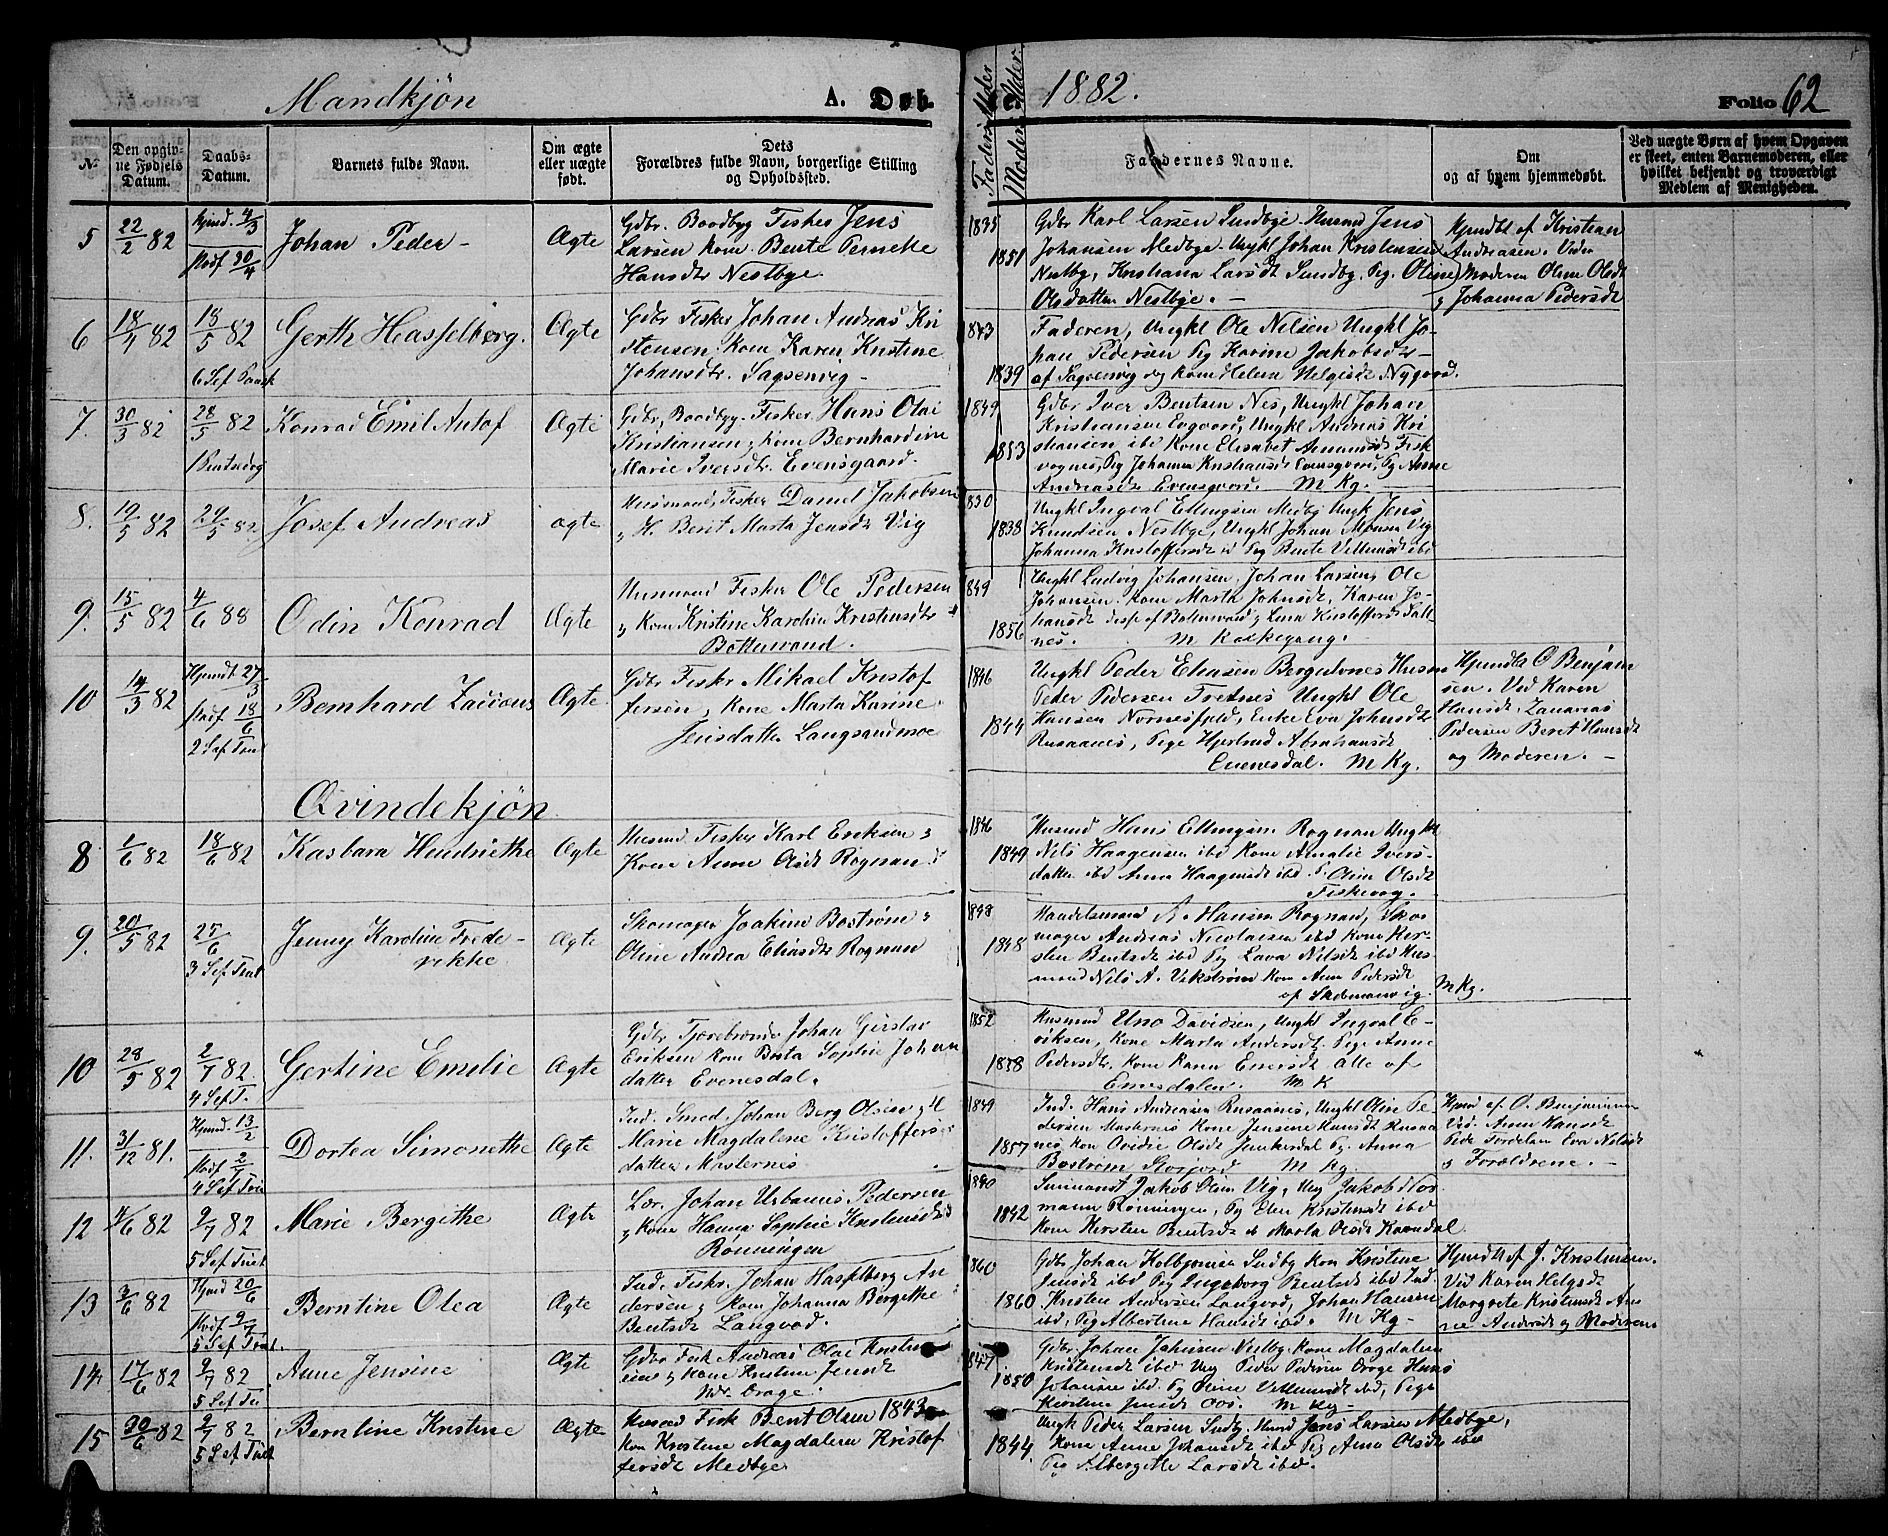 Mandkjøn
A. Døb-
te.
1882.
Folio 62
No
Den opgiv-
ne Fødsels
Datum.
Daabs-
Datum.
Barnets fulde Navn.
Om ægte
eller uægte
født.
Dets
Forældres fulde Navn, borgerlige Stilling
og Opholdssted.
Faderens Alder
Moderens Alder.
Faddernes Navne.
Om
og af hvem hjemmedøbt.
Ved uægte Børn af hvem Opgaven
er skeet, enten Barnemoderen, eller
hvilket bekjendt og troværdigt
Medlem af Menigheden.
5
22/2 82
Hjmd. 4/3
Stadf 30/4
Johan Peder
Ægte
Gdbr. Boadbyg Fisker Jens
Larsen kone Bente Pernelle
Hansdtr Nestbye
1835
1851
Gdbr Karl Larsen Sundbye. Husmd Jens
Johansen Medbye. Ungkl Johan Kristensen
Nestby, Kristiana Larsdt Sundby, Pig. Oline
Olsdatter Nestbye.
Hjmdbt af Kristian
Andreasen. Viden
Moderen Oline Olsdt
og Johanna Pedersdt
6
82
18/5 82
6 Sef Paask
Gerth Hasselberg.
Ægte
Gdbr Fisker Johan Andreas Kri
stensen, kone Karen Kristine
Johansdtr. Saxenvig
1843
1839
Faderen, Ungkl Ole Nilsen Ungkl Jo-
han Pedersen Pig Karine Jakobsdtr
af Saxenvig og kone Helena Helgesdt Nygord.
7.
30/3 82
28/5 82
1 Pintsedag
Konrad Emil Antof
Ægte
Gdbr, Boadbyg. Fisker Hans Olai
Kristiansen og kone Bernhardine
Marie Iversdtr. Evensgaard.
1849
1853
Gdbr Iver Bentsen Nes, Ungkl Johan
Kristiansen Evgoord, Ungkl Andreas Kri
stiansen ibd Kone Elisabet Amundsdt Fisk
vognes, Pig Johanna Kristiansdt Evensgoord, Pig Anne
Andreasdt Evensgoord. M Kg.
8.
19/5 82
29/5 82.
Josef Andreas
ægte
Husmand, Fisker Daniel Jakobsen
og H. Berit Marta Jensdt Vig
1830
1838
Ungkl Ingval Ellingsen Medby Ungk Jens
Knudsen Nestbye, Ungkl Johan Monsen Vig
Johanna Kristoffersdt Pig Bente Villumsdt ibd
9.
15/5 82
4/6 88
Odin Konrad
Ægte
Husmand Fisker Ole Pedersen
og Kone Kristine Karolina Kristensdtr
Bottenvand.
1849
1856
Ungkl Ludvig Johansen, Johan Larsen, Ole
Johansen. Kone Marta Johnsdt, Karen Jo-
hansdt disse af Bottenvand og Lina Kristoffersdt Salt-
nes. M Kirkegang.
10
14/3 82
Hjmdt 27/3
Stadf 18/6
2 Sef Trint
Bernhard Zacious
Ægte
Gdbr Fisker Mikael Kristof
fersen, Kone Marta Karine
Jensdatter Langsandmoe
1846
1844
Ungkl Peder Eliasen Bergulvnes Husm
Peder Pedersen Tretnes Ungkl Ole
Hansen Nornesfjeld, Enke Eva Johnsdt
Rusaanes, Pige Hjertrud Abrahamsdt
Evenesdal. M Kg.
Hjmdt O Benjam
sen. Ved Karen
Hansdt, Zacarias
Pedersen Beret Hansdt
og Moderen.
Qvindekjøn
8
1/6 82
18/6 82
Kasbara Hendriethe
Ægte
Husmd Fisker Karl Eriksen og
Kone Anna Olsdt Rognan
1846
1849
Husmd Hans Ellingsen Rognan Ungkl
Nils Haagensen ibd Kone Amalie Ivers-
datter ibd Anna Haagensdt ibd Oline Olsdt
Fiskevog.
9.
20/5 82
25/6
3 Sef Trint
Jenny Karoline Frede-
rikke
Ægte
Skomager Joakim Bostrøm og
Oline Andrea Eliasdt Rognan
1848
1848
Handelsmand A. Hansen Rognan, Sko
mager Andreas Nicolaisen ibd kone Ker-
sten Bentsdt ibd Pig Lava Nilsdt ibd Hus
mand Nils A. Vikstrøm kone Anne Pedersdt
af Skebmanvig.
M Kg.
10
28/5 82
2/7 82.
4 Sef T.
Gertine Emilie
Ægte
Gdbr Tjærebrænder Johan Girslav
Eriksen kone Berta Sophie Johan
datter Evenesdal.
1852
1858
Husmnd Uno Davidsen, Ungkl Ingval E-
riksen, Kone Marta Andersdt, Pige Anne
Pedersdt, Kone Karen Eversdt Alle af
Evnesdalen. M K
11.
31/12 81.
Hjmd. 13/2
Stadf 2/7
4 Sef Trin
Dortea Simonethe
Ægte
Ind. Smed. Johan Berg Olsen og H
Marie Magdalene Kristoffers-
datter Mosternes
1849
1857
Ind. Hans Andreasen Rusaanes, Ungkl Olin Pe-
dersen Mosternes Kone Jensine Hansdt Rusaa
nes kon Ovidie Olsdt Junkerdal Pg. Anna
Bostrøm Storjord M Kg.
Hjmd af O. Benjaminsen
Ved. Anne Hansdt
Peder Tordalen Eva Nilsdt
og Forældrene.
12
4/6 82
9/7 82
5 Sef Trint
Marie Bergithe
Ægte
Lør. Johan Urbanus Pedersen
og Kone Hanna Sophie Kristensdt
Rønningen
1840
1842
Johan Olsen Vig, Ung Jakob Nor
mann Rønningen, Pg Elen Kristensdt ibd
kone Kersten Bentsdt Marta Olsdt
13
3/6 82
Hjmd 20/6
Stadf 9/7
5 Sef Trint.
Berntine Olea
Ægte
Ind. Fiskr. Johan Hasselberg An
dersen og Kone Johanna Bergithe
Bentsdt Langvad.
1860
1860
Gdbr Johan Kolbjørnsen Sundby kon Kristine
Jensdt ibd Pig Ingeborg Bentsdt ibd Ind.
Kristen Andersen Langvad, Johan Hansen
ibd, Pig Albertine Hansdt ibd. M Kg
Hjmdbt af J. Kristensen.
Ved Karen Helgsdt
Margrete Kristensdt An
ne Andersdt og Moderen
14.
17/6 82
9/7 82
5 Sef Tri
Anne Jensine
Ægte
Gdbr Fisk Andreas Olai Kristen
sen og Kone Kristine Jensdt
Ndr Drage.
1847
1850
Gdbr Johan Johnsen Nestby Kone Magdalena
Kristensdt ibd Ung Peder Pedersen Drage Hans
Johansen ibd. Pg Oline Villumsdt ibd, Pige
Kirstine Jensdt Oos. M Kg
15
30/6 82
9/7 82
5 Sef Trint
Berntine Kristine
Ægte
Husmd Fisk Bent Olsen 1843
kon Kristine Magdalena Kristof
fersdt Medbye
1844
Ungk Peder Larsen Sundby, Husmd Jens Larsen Medbye,
Kone Anne Johansdt ibd Pg Anna Olsdt ibd
Pig Albergitte Larsdt ibd.